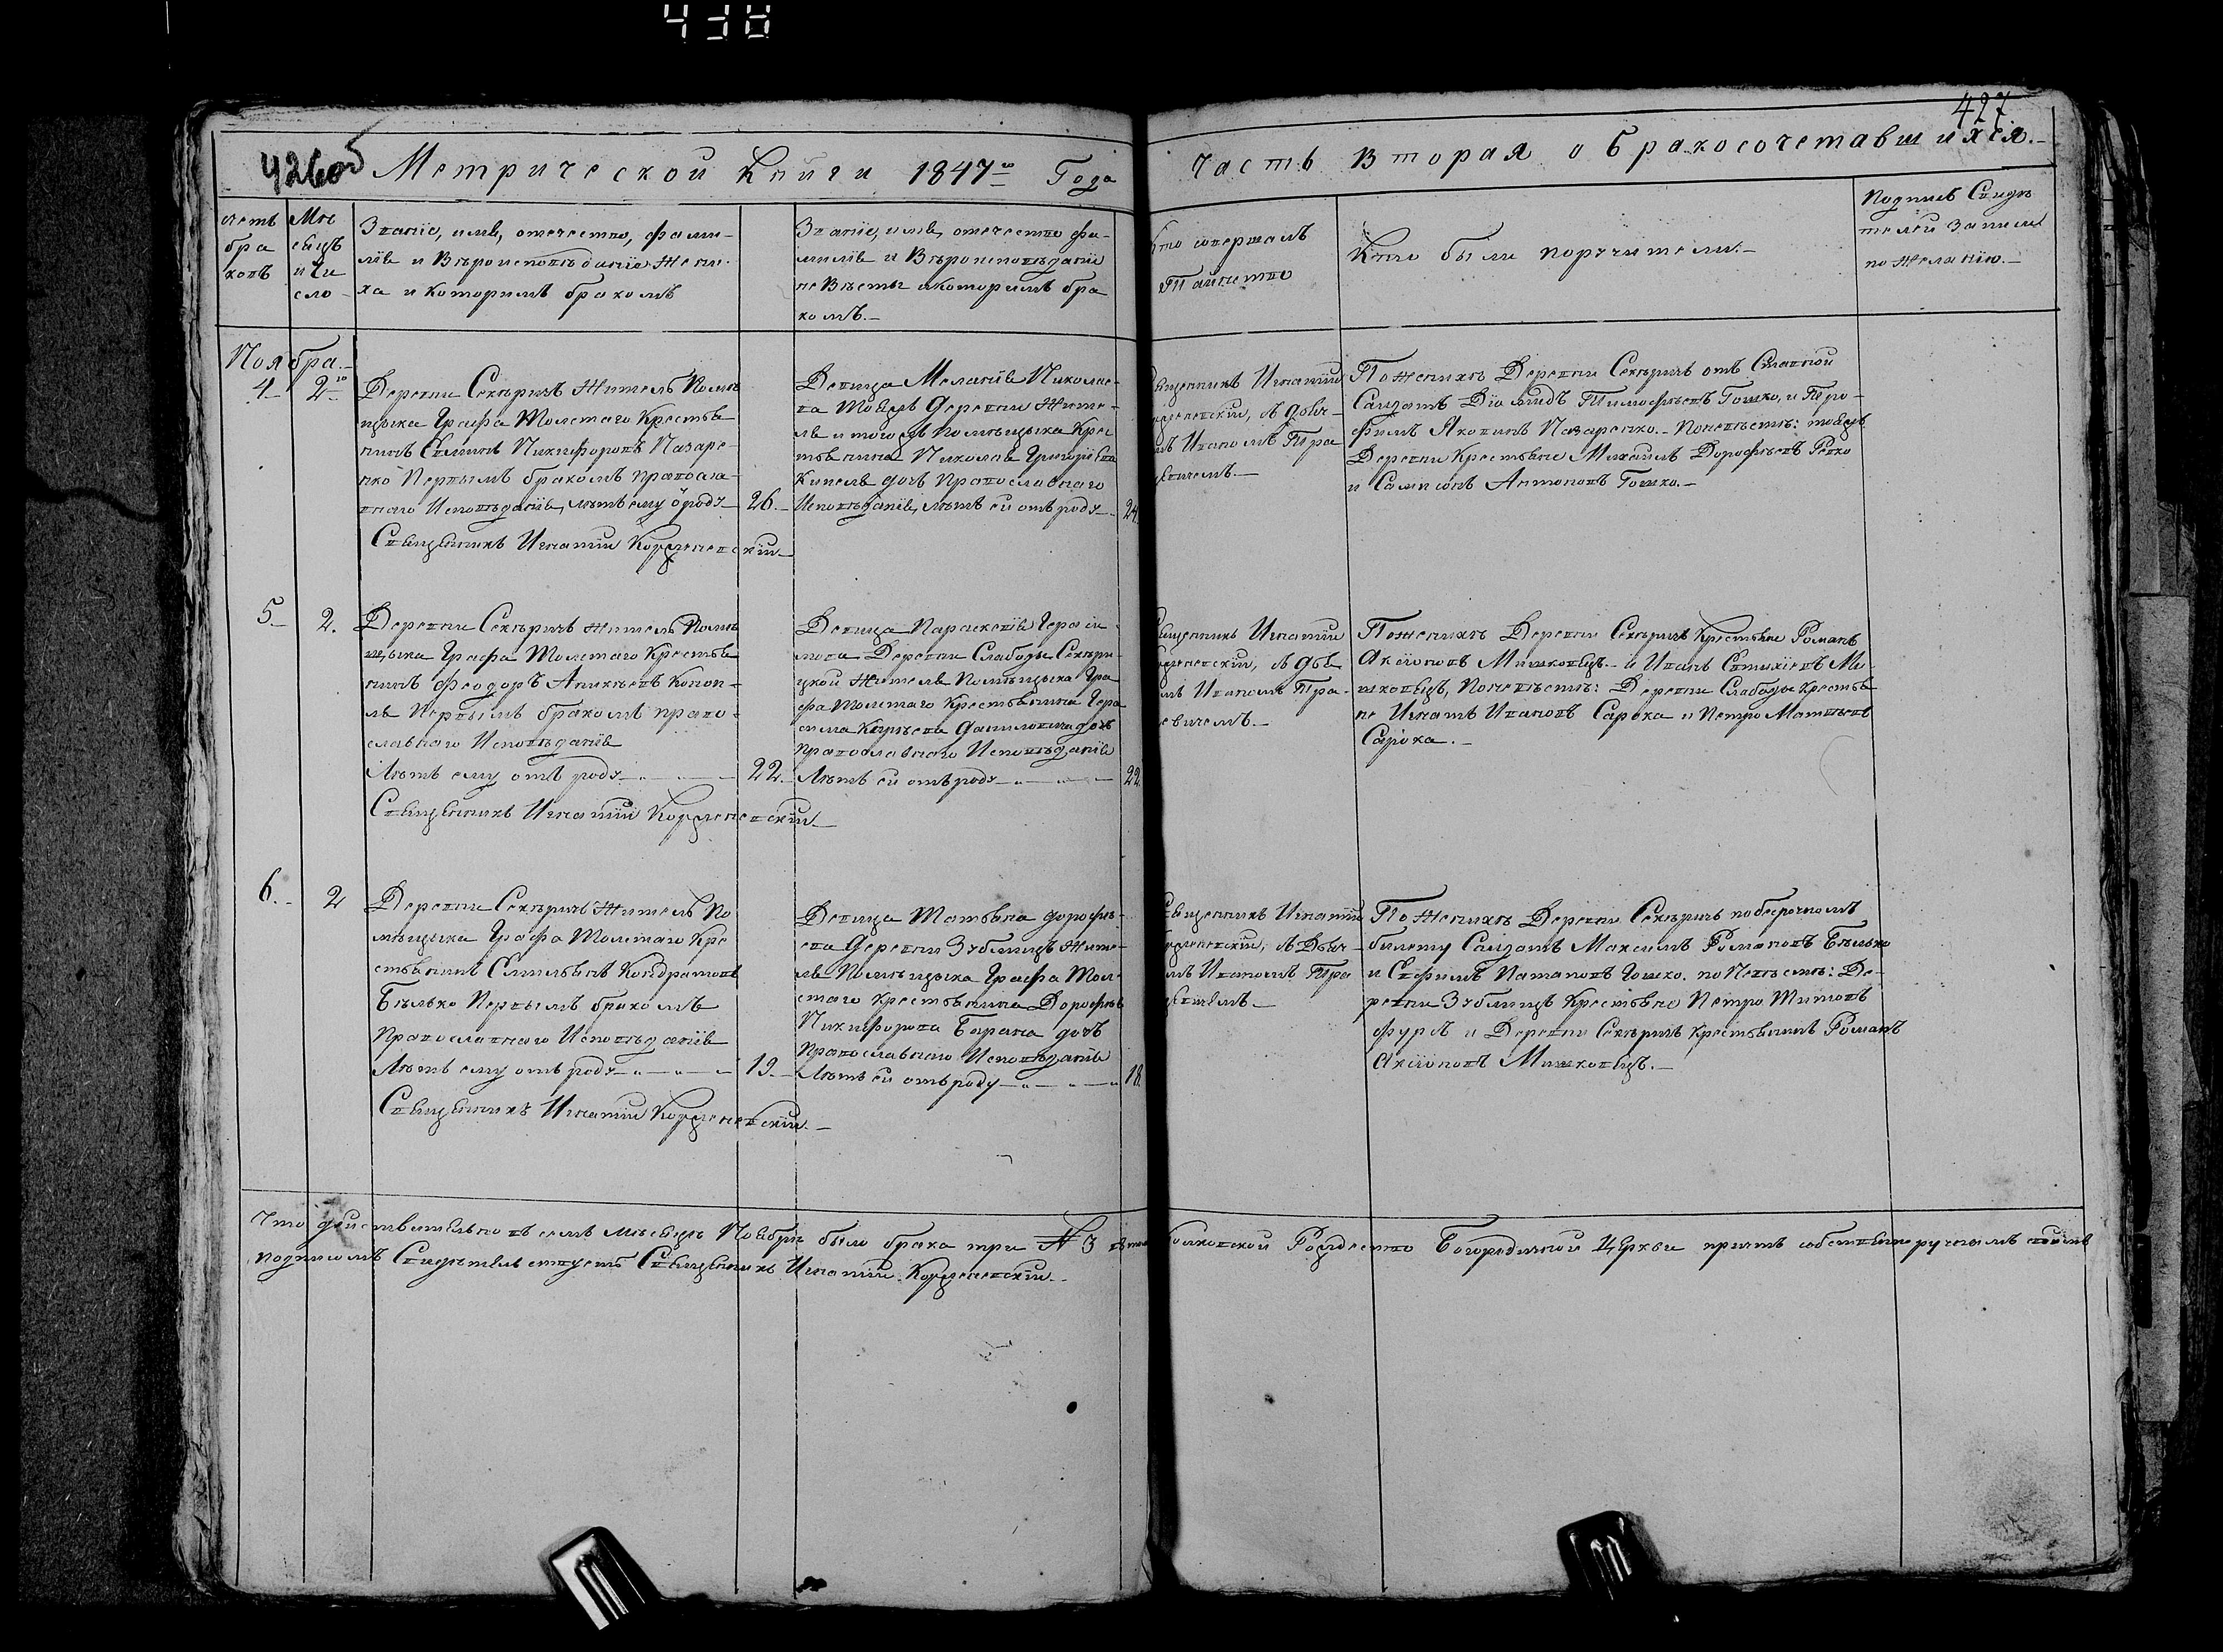 438
426об
Метрической Книги 1847го Года
427
Часть вторая о бракосочетавшихся.
счетъ
бра
ковъ
Мѣ
сецъ
и чи
сло
Званіе, имя, отечество, фами-
лія и Вѣроисповѣданіе жени-
ха и которимъ бракомъ
Званіе, имя, отечество фа-
милія и Вѣроисповѣданіе
невѣсты икоторимъ бра
комъ.
Кто совершалъ
Таинство
Кто были поручители.
Подпись Свидѣ
телей записи
по желанію.
Ноября.
4 2го
Деревни Секѣричъ житель Помѣ
щыка Графа Толстаго Крестья
нинъ Симинъ Никифоровъ Назаре-
нко Первымъ бракомъ правосла-
внаго Исповѣданія, лѣтъ ему ѿроду 26.
Священникъ Игнатіи
Девица Меланія Николае-
ва тоеяжъ деревни жите-
ля и тогожъ помѣщыка Кре
стьянина Николая Григоріева
дочь православнаго
Исповѣданія, лѣтъ ей отъ роду 24.
Священникъ Игнатіи
Ивановъ
По женихѣ Деревни Секѣричъ отъ Ставной
Салдатъ Тимофѣевъ Гошко, и Тро-
фимъ Яковинъ Назаренко. Поневѣстѣ: тоежъ
Деревни Крестьяне Михаилъ Дорофѣевъ Репко
и Самсонъ Антоновъ Гошко.
5 2.
Деревни Секѣричъ житель Помѣ
щыка Графа Толстаго Крестья
нинъ Феодоръ Аникѣевъ Коноп-
ля Первымъ бракомъ право-
славнаго Исповѣданія
Лѣтъ ему отъ роду 22.
Священникъ Игнатіи
Девица Параскевія Гераси-
мова Деревни Слабоды Секѣри-
цкой жителя Помѣщыка Гра
фа Толстаго Крестьянина Гера
сима дочь
православнаго Исповѣданія
Лѣтъ ей отъ роду 22.
Священникъ Игнатіи
Иваномъ
По женихѣ Деревни Секѣричъ Крестьяне Романъ
Аксіоновъ Мишковецъ. и Иванъ Ми-
шковецъ, Поневѣстѣ: Деревни Слабоды Крестья
не Игнатъ Ивановъ Сарока и Петро Матвѣевъ
Сарока.
6. 2
Деревни Секѣричъ житель По
мѣщыка Графа Толстаго Кре
стьянинъ Емильянъ Кондратовъ
Бѣлько Первымъ бракомъ
Православнаго Исповѣданія
Лѣтъ ему отъ роду 19.
Священникъ Игнатіи
Девица Татьяна дорофѣ-
ева деревни Зублицъ жите-
ля Помѣщыка Графа Тол-
стаго Крестьянина Дорофѣя
Никифорова Барана дочь
Православнаго Исповѣданія
Лѣтъ ей отъ роду 18.
Священникъ Игнатіи
Иваномъ
По женихѣ Деревни Секѣричъ побезрочному
билету Салдатъ Максимъ Романовъ Бѣлько
и Ефимъ Патаповъ Гошко. по Невѣстѣ: Де-
ревни Зублицъ Крестьяне Петро Титовъ
Фурсъ и Деревни Секѣричъ Крестьянинъ Романъ
Аксіоновъ Мишковецъ.
Что дѣйствительно въ семъ мѣсецѣ Ноябрѣ было брака три № 3 Рождество Богородичной Церкви причтъ собственноручнымъ своимъ
подписомъ Свидѣтельствуетъ Священникъ Игнатіи